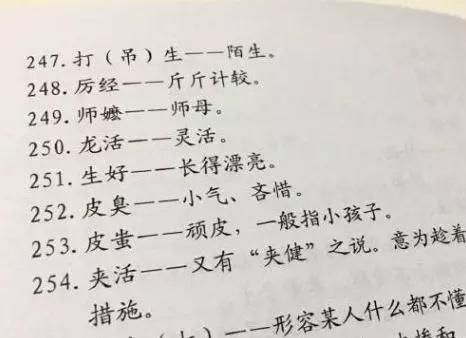 247. 打（吊）生——陌生。
248. 厉经——斤斤计较。
249. 师嬷——师母。
250. 龙活——灵活。
251. 生好——长得漂亮。
252. 皮臭——小气、吝惜。
253. 皮蚩——顽皮，一般指小孩子。
254. 夹活——又有“夹健”之说。意为趁着
措施。
）——形容某人什么都不懂